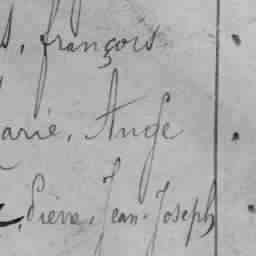 s, françois
arie, Ange
Pière, Jean-Joseph